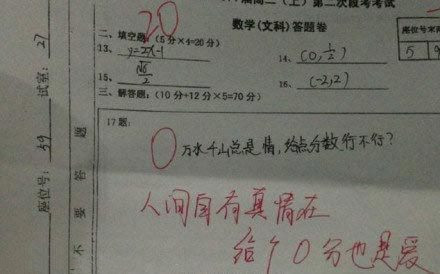 高二（上）第二次段考考试
数学（文科）答题卷
座位号末两
5 9
20
二、填空题：（5分×4=20分）
13、y=2x-1
14、(0, 1/2)
15、√6/2
16、(-2,2)
三、解答题：（10分+12分×5=70分）
17题：
0 万水千山总是情，给点分数行不行？
人间自有真情在
给个0分也是爱
试室：27
座位号：59
不要答题